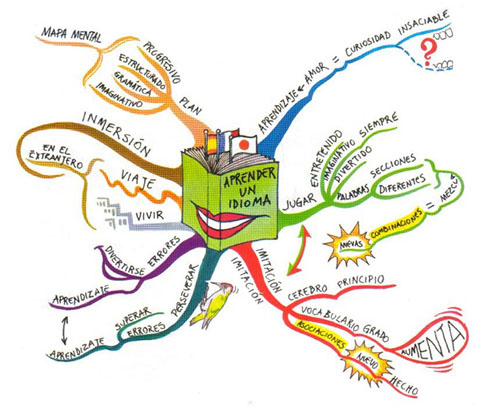 MAPA MENTAL
PROGRESIVO
ESTRUCTURADO
GRAMÁTICA
IMAGINATIVO
PLAN
INMERSIÓN
EN EL
EXTRANJERO
VIAJE
VIVIR
ERRORES
DIVERTIRSE
APRENDIZAJE
PERSEVERAR
SUPERAR
ERRORES
APRENDIZAJE
APRENDER
UN
IDIOMA
APRENDIZAJE AMOR = CURIOSIDAD INSACIABLE
?
JUGAR
ENTRETENIDO
IMAGINATIVO SIEMPRE
DIVERTIDO
PALABRAS
SECCIONES
DIFERENTES
= MEZCLA
COMBINACIONES
NUEVAS
IMITACIÓN
IMITACIÓN
CEREDRO PRINCIPIO
VOCABULARIO GRADO
AUMENTA
ASOCIACIONES
NUEVO
HECHO